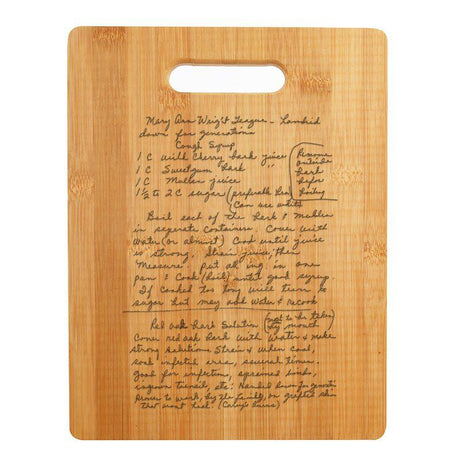 Mary Ann Weight Teague - handed
down for generations
Cough Syrup
1 C wild Cherry bark juice
1 C Sweetgum bark "
1 C Mullen juice
1½ to 2 C sugar (
(Can use white
Remove
outside
bark
before
boiling
Boil each of the bark & mullen
in seperate containers. Cover with
water (or almost) Cook until juice
is strong. Strain juice, then
Measure & put all ing. in one
pan & Cook (boil) until good syrup.
If cooked too long will turn to
sugar but may add water & recook
Red oak bark Solution (not to be taken
by mouth
Cover red oak bark with water & make
strong solutions Strain & when cool,
soak infected area, several times.
good for infections, sprained limbs,
ingrown toenail, etc. Handed down for generations
Proven to work, by the family, on grafted skin
that wont heal. (